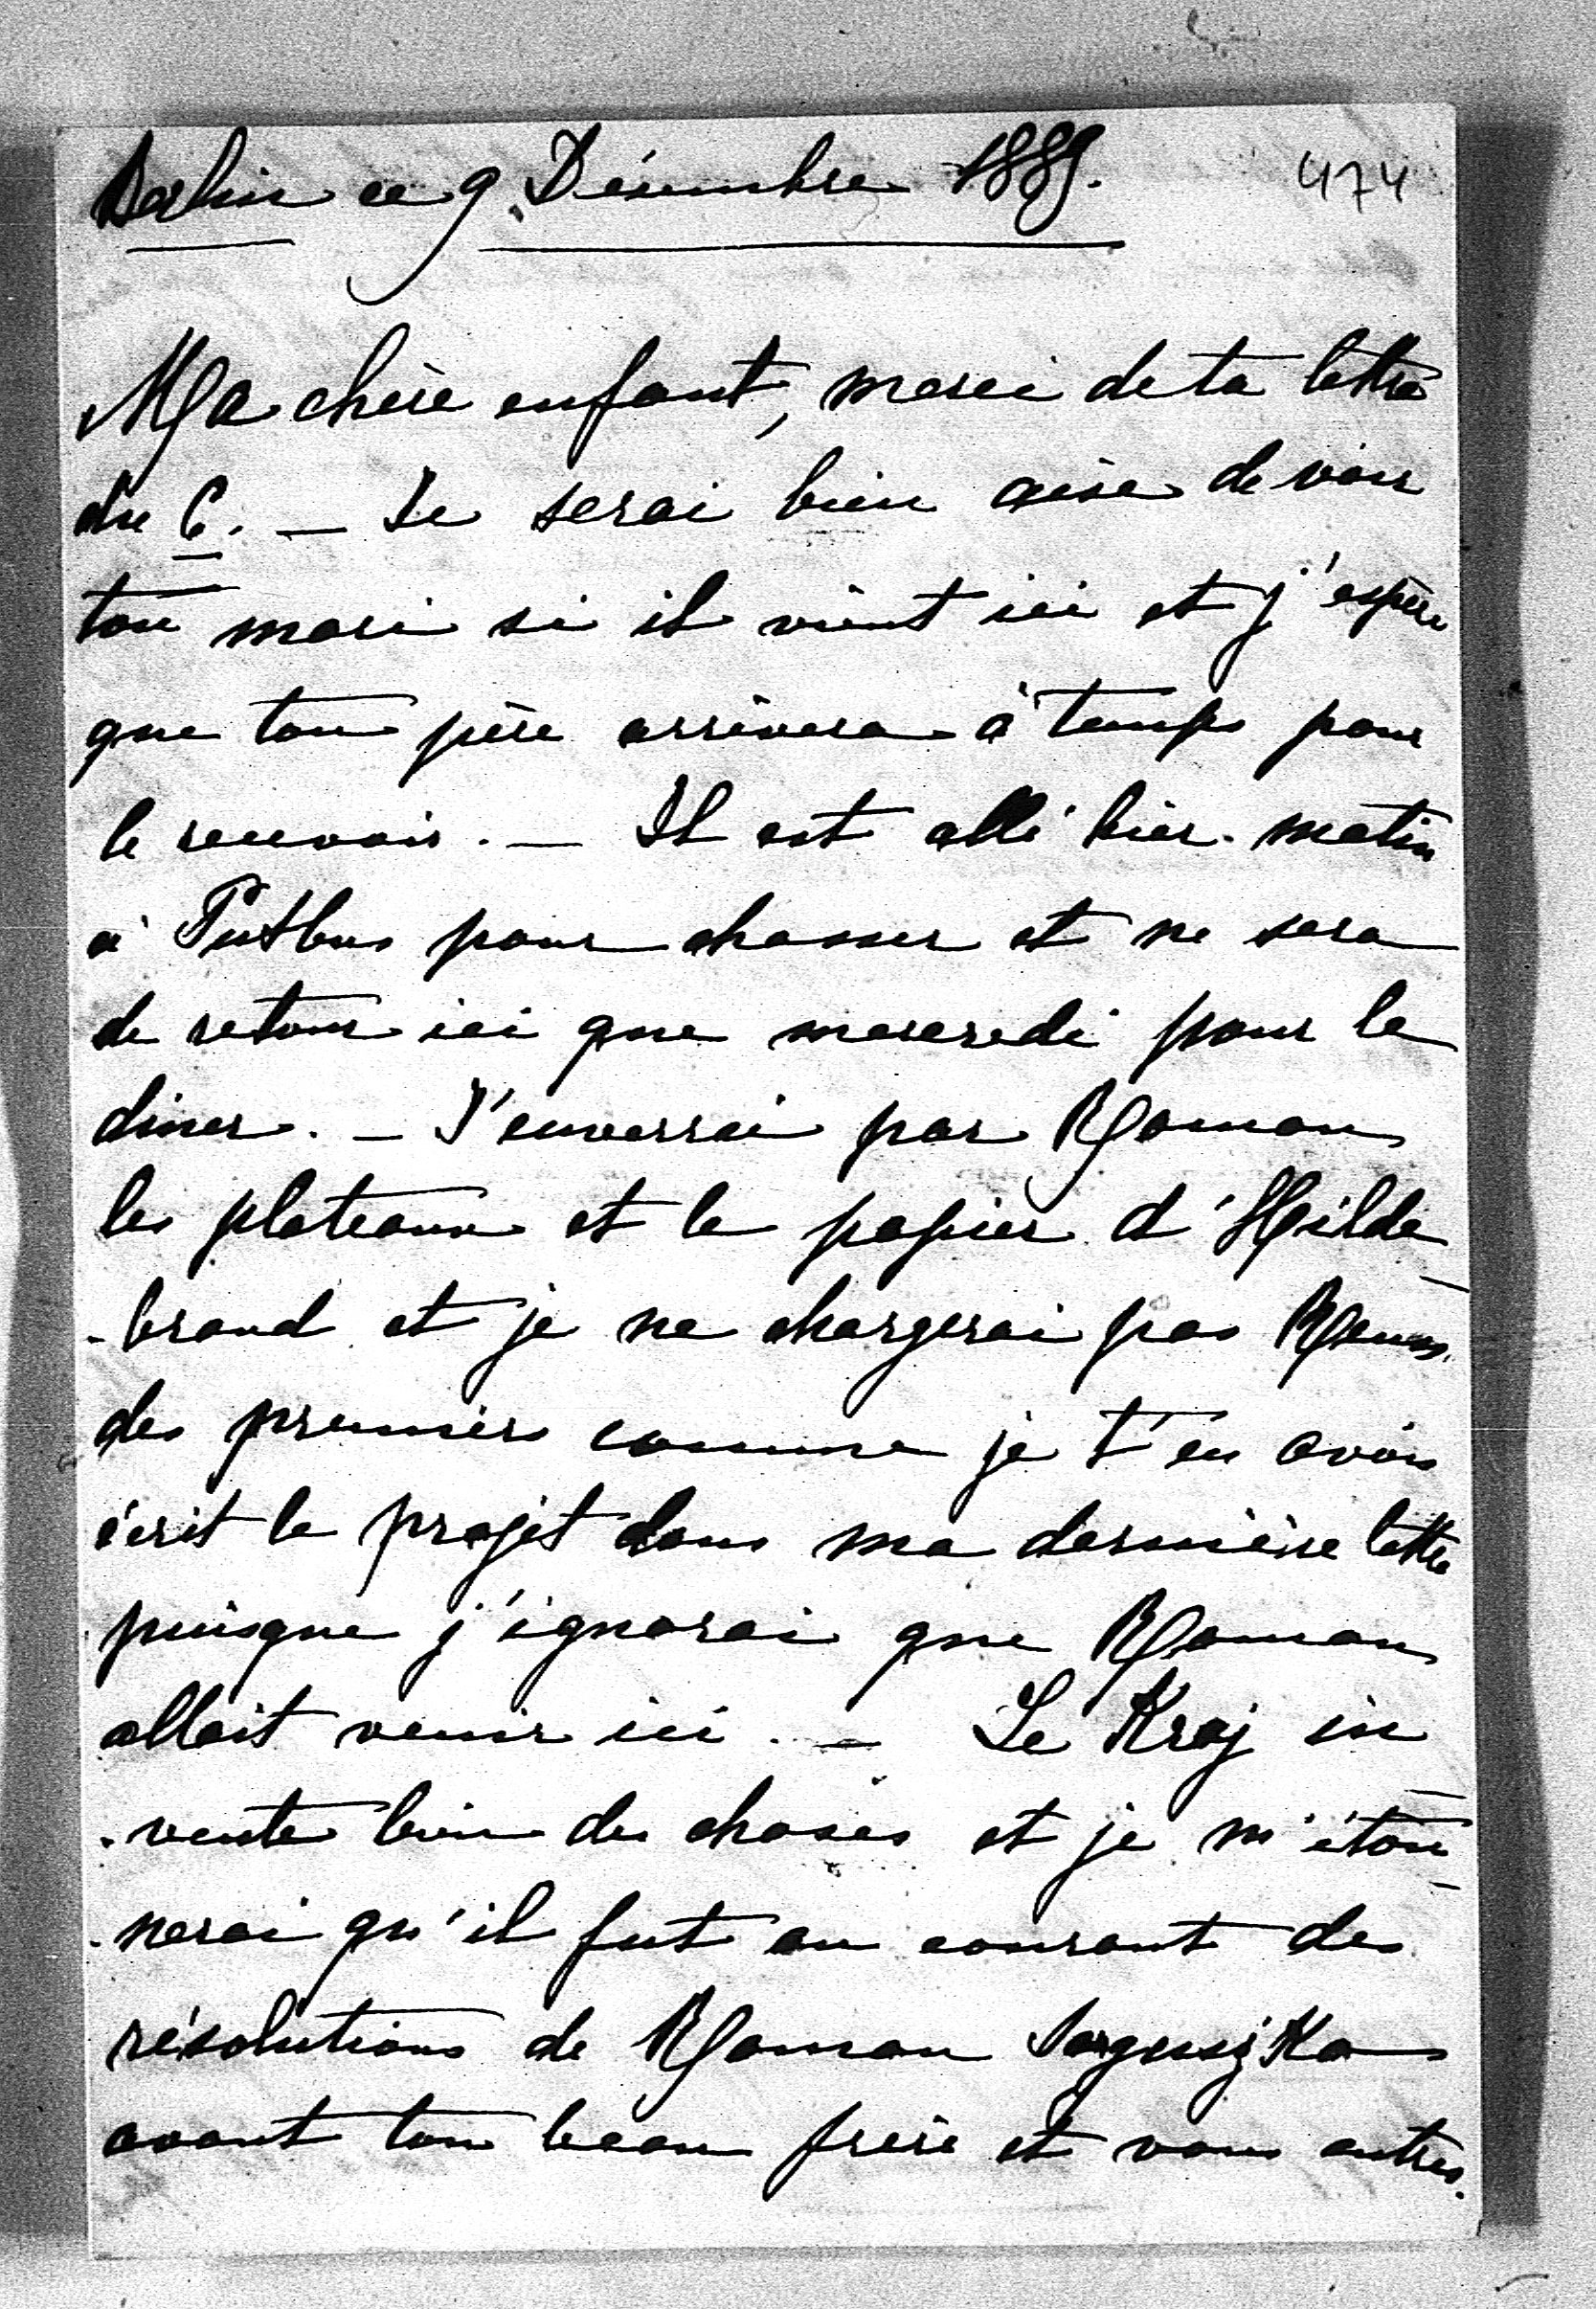 Berlin ce 9 Décembre 1889. 474
Ma chère enfant, merci de ta lettre
du 6. — Je serai bien aise de voir
ton mari si il vient ici et j'espère
que ton père arrivera à temps pour
le recevoir. — Il est allé hier matin
à Putbus pour chasser et ne sera
de retour ici que mercredi pour le
diner. — J'enverrai par Roman
les plateaux et le papier d'Hilde
-brand et je ne chargerai pas
des premiers comme je t'en avais
écrit le projet dans ma dernière lettre
puisque j'ignorai que Roman
allait venir ici. — Le Kraj in
-vente bien des choses et je m'éton
-nerai qu'il fut au courant des
résolutions de Roman Sanguszko
avant ton beau frère et vous autres.